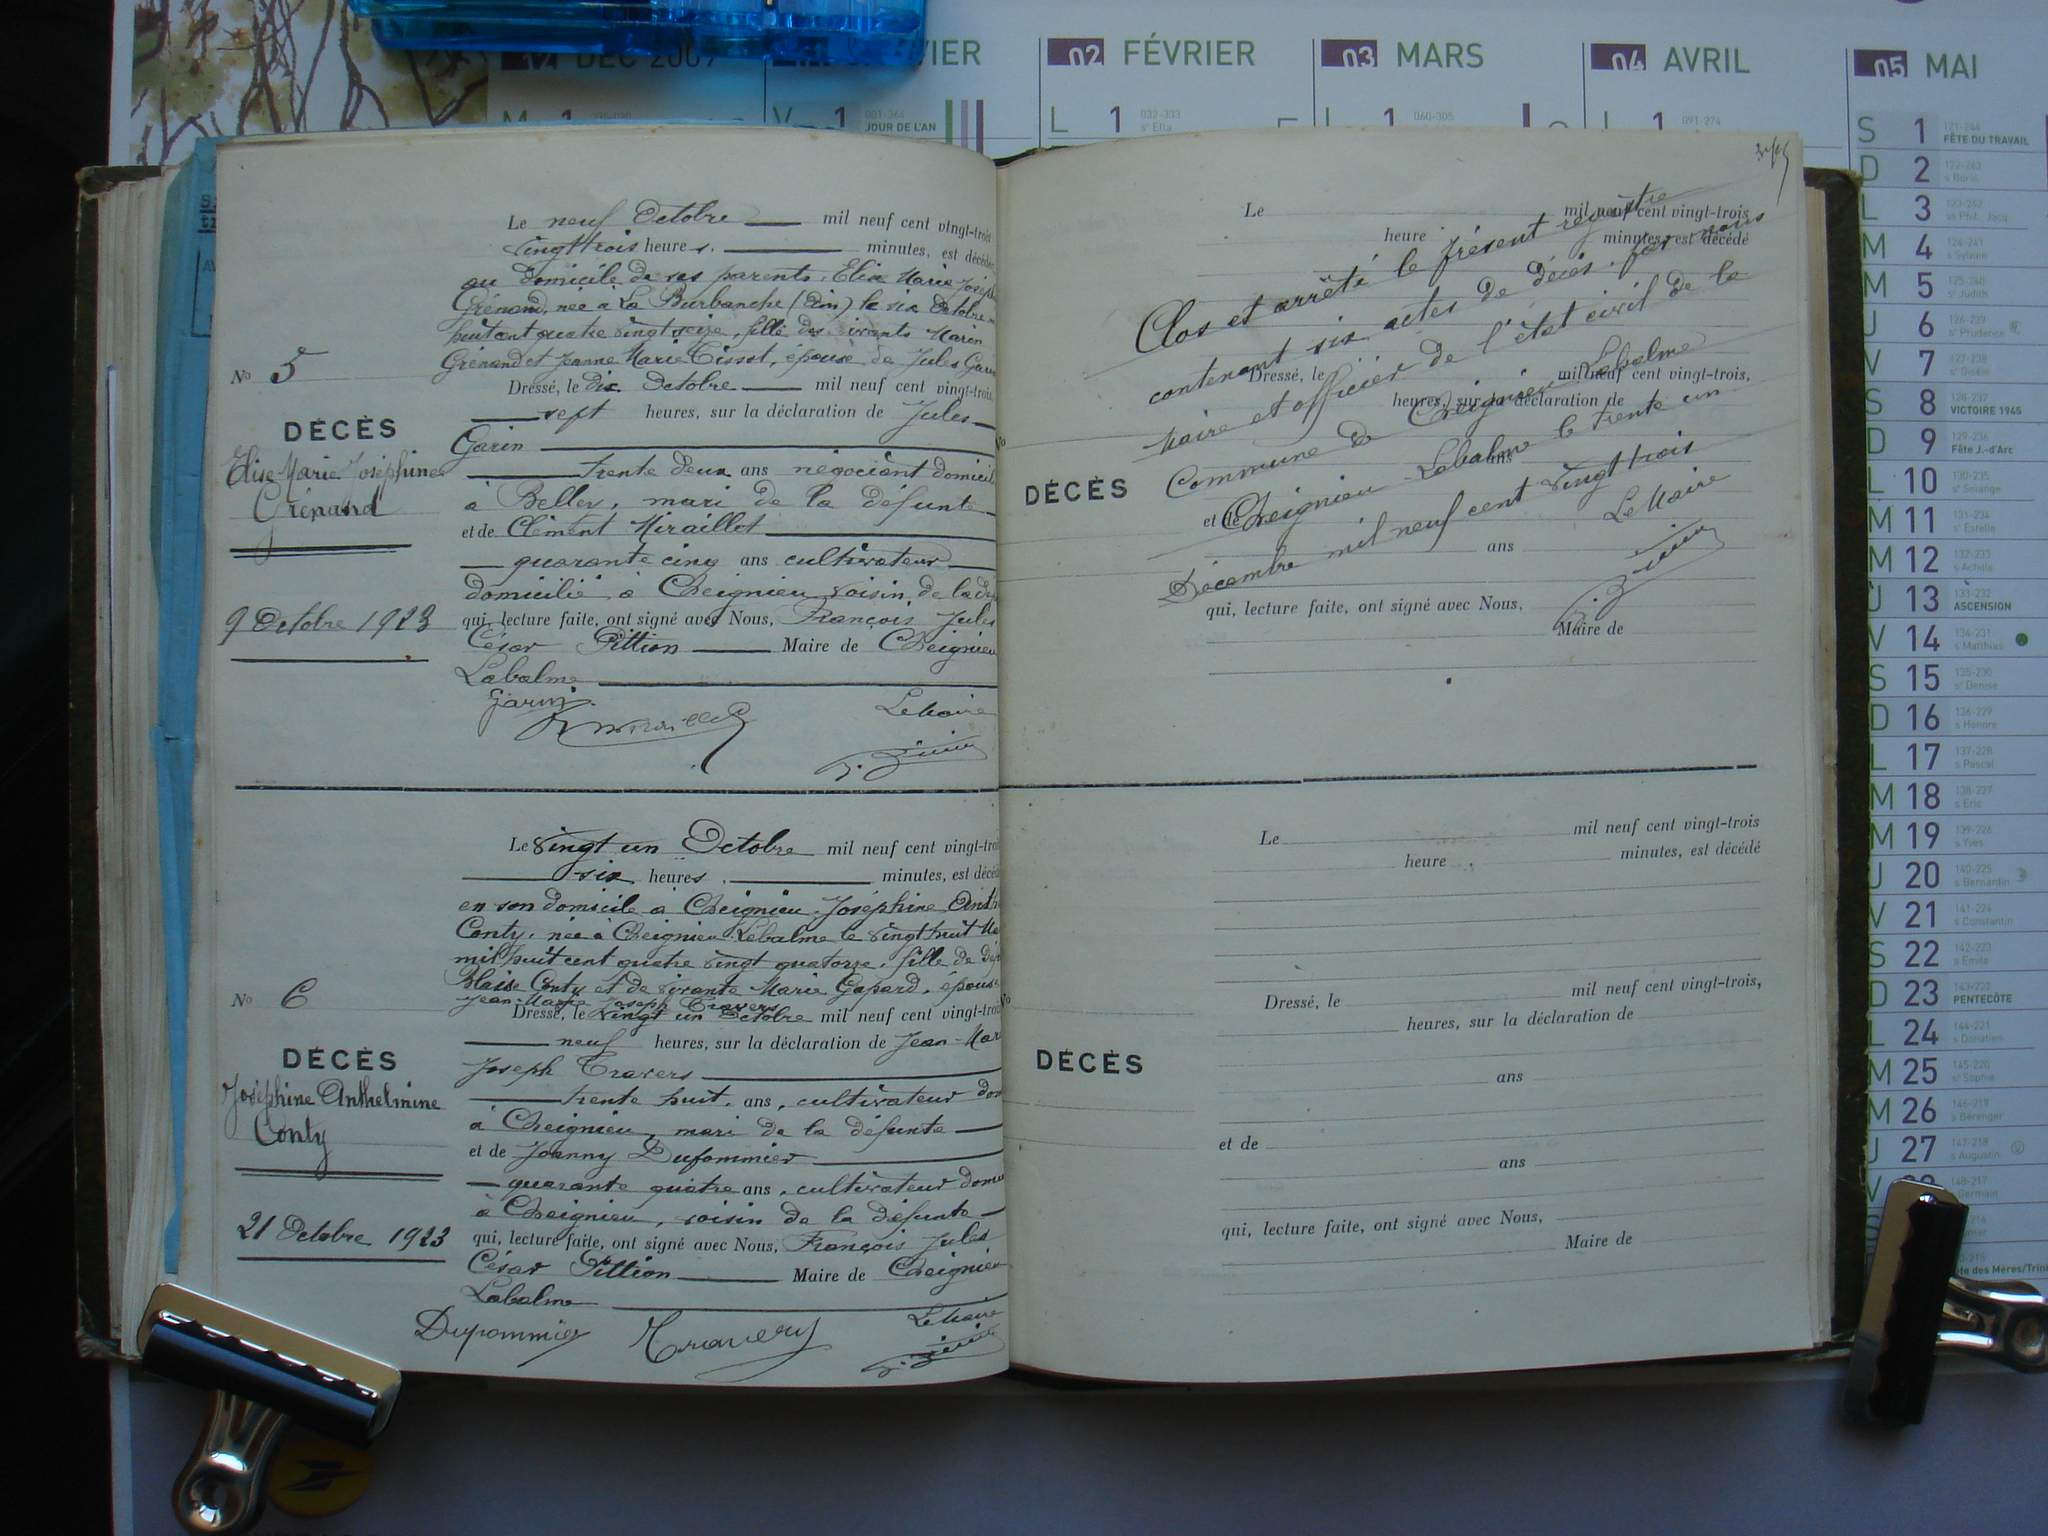 DEC 2009
VIER
02 FÉVRIER
03 MARS
04 AVRIL
05 MAI
M 1
V 1 001-364 JOUR DE L'AN
L 1 032-333 sᵗ Ella
L 1 060-305
L 1 091-274
S 1 121-244 FÊTE DU TRAVAIL
D 2 122-243 s Boris
L 3 123-242 ss Phil., Jacq.
M 4 124-241 s Sylvain
M 5 125-240 sᵗ Judith
J 6 126-239 sᵗ Prudence
V 7 127-238 sᵗ Gisèle
S 8 128-237 VICTOIRE 1945
D 9 129-236 Fête J.-d'Arc
L 10 130-235 sᵗ Solange
M 11 131-234 sᵗ Estelle
M 12 132-233 s Achille
J 13 133-232 ASCENSION
V 14 134-231 s Matthias
S 15 135-230 sᵗ Denise
D 16 136-229 s Honoré
L 17 137-228 s Pascal
M 18 138-227 s Eric
M 19 139-226 s Yves
J 20 140-225 s Bernardin
V 21 141-224 s Constantin
S 22 142-223 s Emile
D 23 143-222 PENTECÔTE
L 24 144-221 s Donatien
M 25 145-220 sᵗ Sophie
M 26 146-219 s Bérenger
J 27 147-218 s Augustin
V 148-217 Germain
S
ête des Mères/Trini
Le neuf Octobre mil neuf cent vingt-trois
Vingt trois heures. minutes, est décédée
au domicile de ses parents, Elise Marie Joséph
Grénand, née à La Burbanche (Ain) le six Octobre
huit cent quatre vingt onze, fille des vivants Marin
Grénand et Jeanne Marie Tissot, épouse de Jules Garin
No 5
Dressé, le dix Octobre mil neuf cent vingt-trois,
sept heures, sur la déclaration de Jules
DÉCÈS
Garin
Elise Marie Joséphine
Grénand
trente deux ans négociant domicil
à Belley, mari de la défunte
et de Clément Miraillet
quarante cinq ans cultivateur
domicilié à Cheignieu voisin de la dé
9 Octobre 1923
qui, lecture faite, ont signé avec Nous, François Jules
César Pittion Maire de Cheignieu
Labalme
Garin Le Maire
Le vingt un Octobre mil neuf cent vingt-trois
six heures. minutes, est décéd
en son domicile à Cheignieu, Joséphine Anth
Conty, née à Cheignieu Labalme le vingt huit Ma
mil huit cent quatre vingt quatorze, fille de Déf
Blaise Conty et de vivante Marie Gapard, épouse
Jean-Marie Joseph Travers
No 6
Dressé, le vingt un Octobre mil neuf cent vingt-trois
neuf heures, sur la déclaration de Jean-Mar
DÉCÈS
Joseph Travers
Joséphine Anthelmine
Conty
trente huit ans, cultivateur dom
à Cheignieu, mari de la défunte
et de Joanny Dupommier
quarante quatre ans, cultivateur domi
à Cheignieu, voisin de la défunte
21 Octobre 1923
qui, lecture faite, ont signé avec Nous, François Jules
César Pittion Maire de Cheignieu
Labalme
Dupommier Travers Le Maire
Le mil neuf cent vingt-trois
heure minutes, est décédé
Clos et arrêté le présent registre
contenant six actes de décès, par nous
Maire et officier de l'état civil de la
Commune de Cheignieu Labalme
Cheignieu Labalme le trente un
Décembre mil neuf cent vingt trois
Le Maire
Dressé, le mil neuf cent vingt-trois,
heures, sur la déclaration de
DÉCÈS
ans
et de
ans
qui, lecture faite, ont signé avec Nous,
Maire de
Le mil neuf cent vingt-trois
heure minutes, est décédé
Dressé, le mil neuf cent vingt-trois,
heures, sur la déclaration de
DÉCÈS
ans
et de
ans
qui, lecture faite, ont signé avec Nous,
Maire de